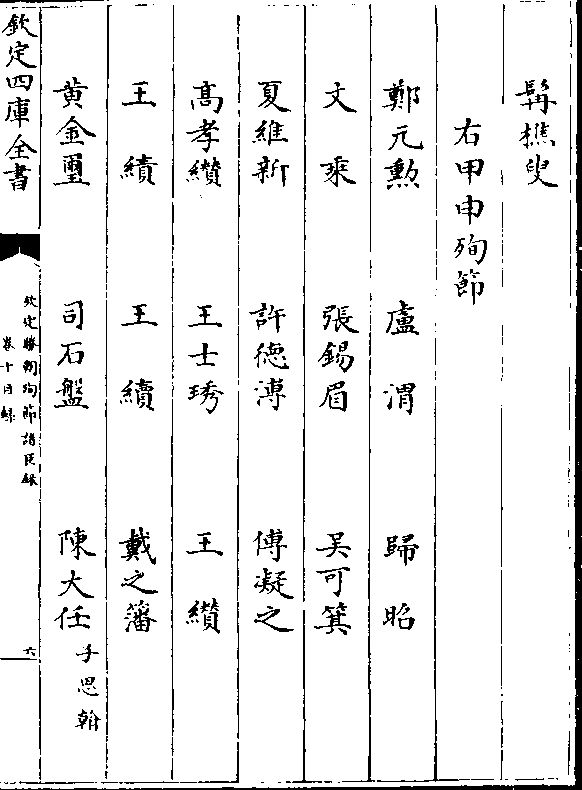 髯樵叟
右甲申殉節
鄭元勲 盧渭 歸昭
文乘 張錫眉 吴可箕
夏維新 許德溥 傅凝之
髙孝纘 王士琇 王纘
王績 王續 戴之藩
黄金璽 司石盤 陳大任 子思翰
欽定四庫全書
欽定勝朝殉節諸臣録
卷十目録
六